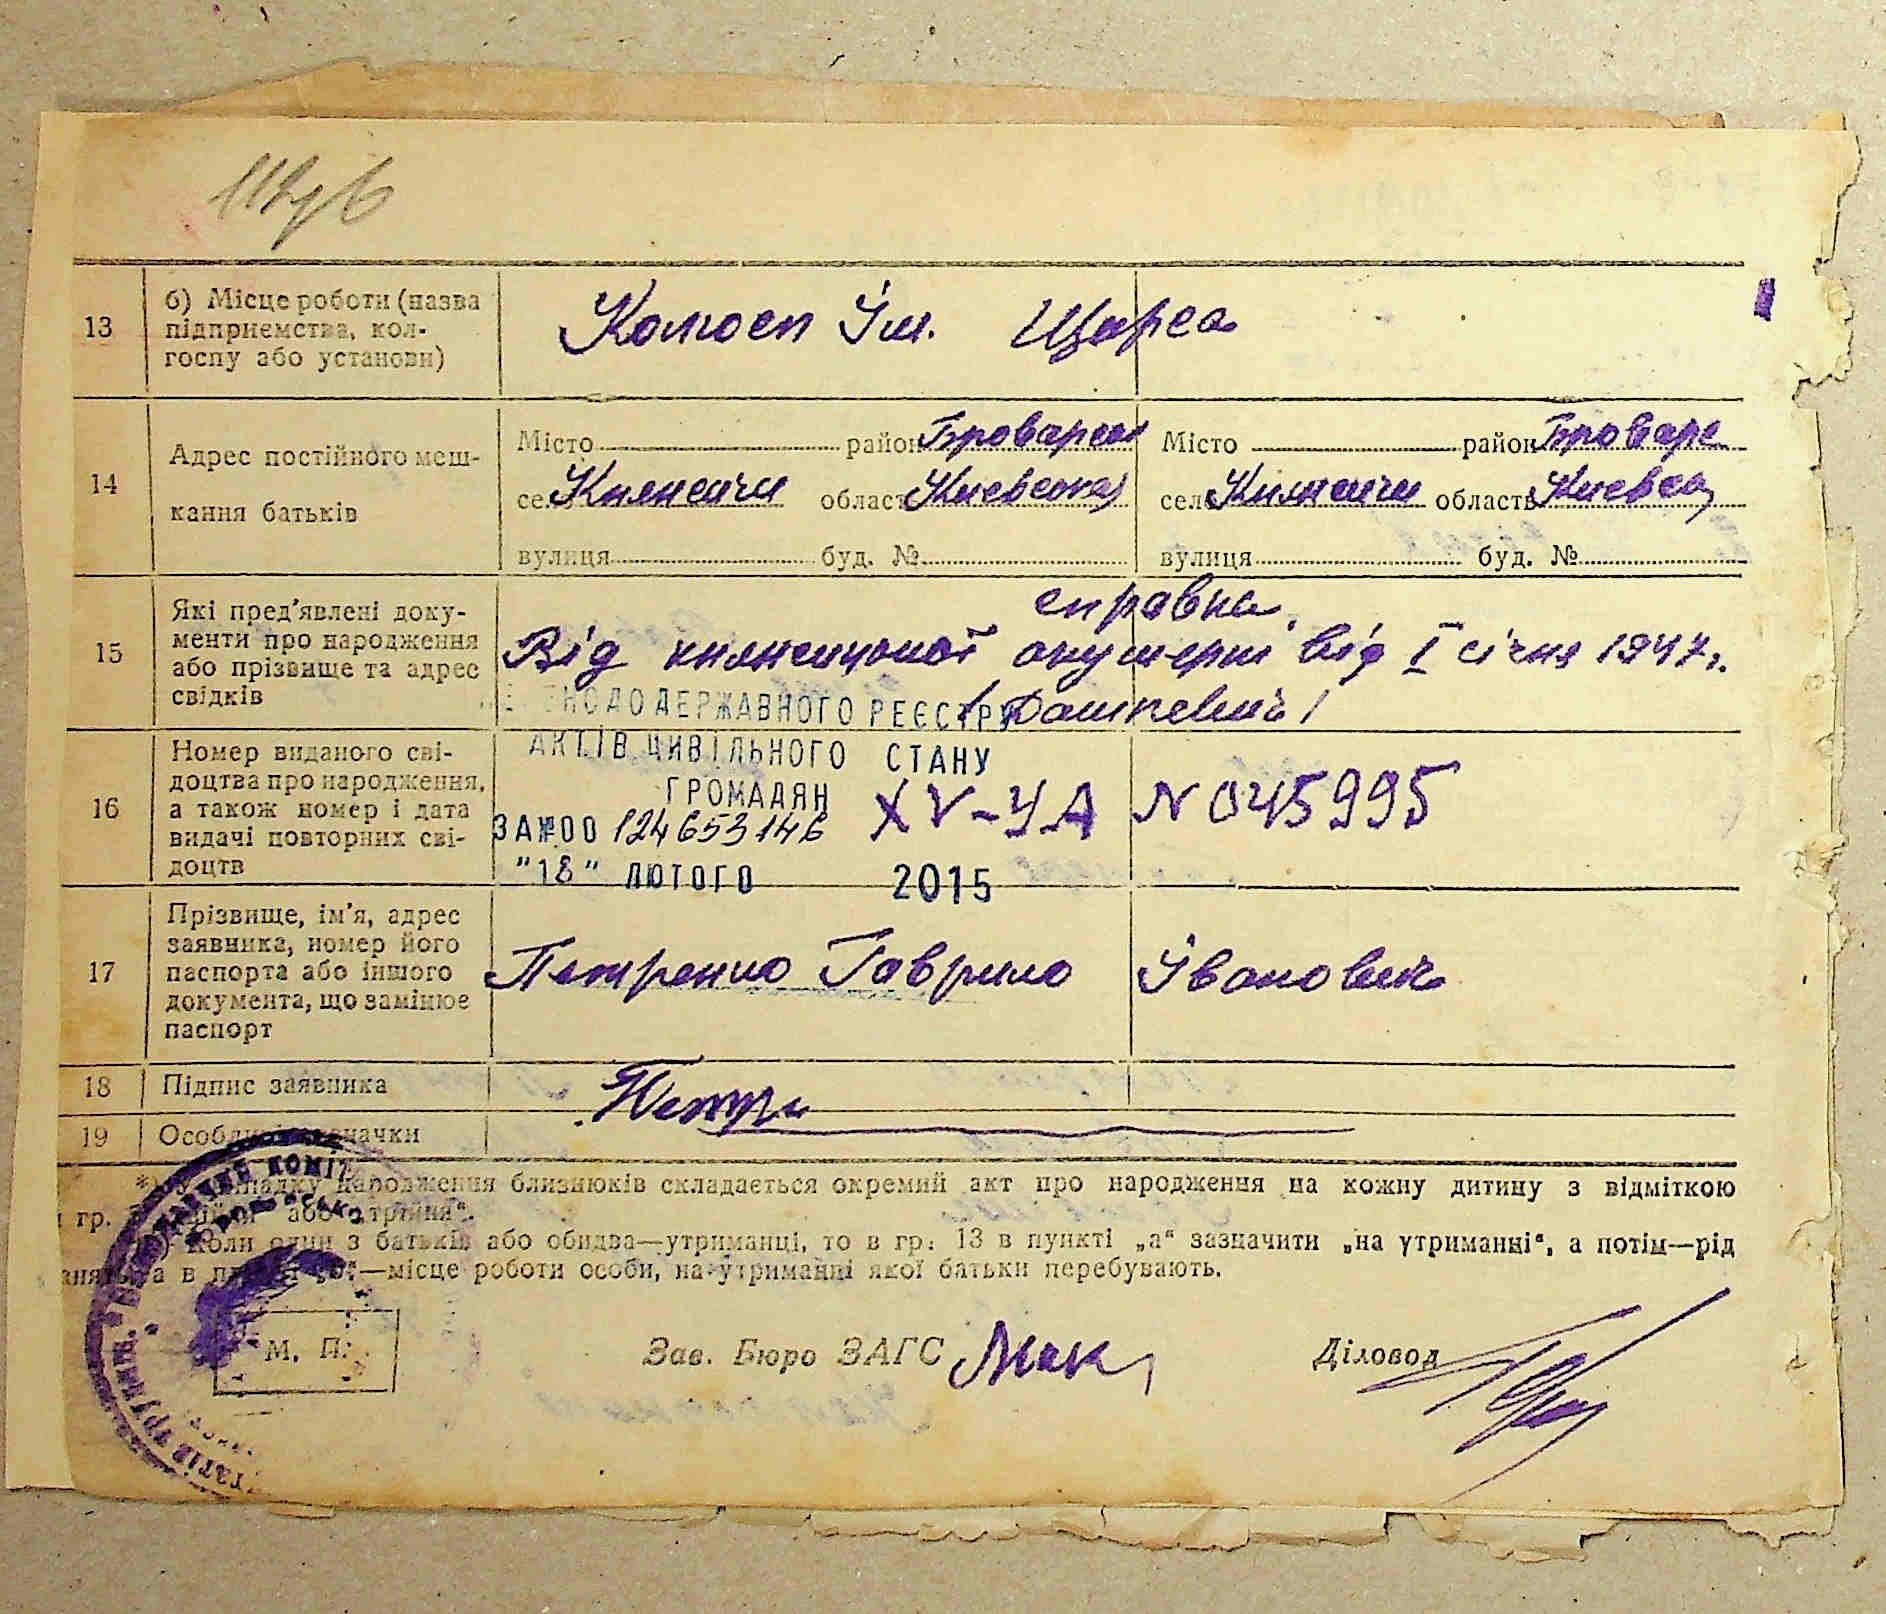 13
б) Місце роботи (назва
підприємства, кол-
госпу або установи)
Колгосп Ім. Щорса
14
Адрес постійного меш-
кання батьків
Місто район Броварськ
село Княжичи область Киевская
вулиця буд. №
Місто район Броварс
село Княжичи область Киевска
вулиця буд. №
15
Які пред'явлені доку-
менти про народження
або прізвище та адрес
свідків
справка
Від княжицької акушерки від I січня 1947 г.
/Дашкевич/
ДО ДЕРЖАВНОГО РЕЄСТРУ
АКТІВ ЦИВІЛЬНОГО СТАНУ
ГРОМАДЯН
ЗА №00 124653146
"18" ЛЮТОГО 2015
16
Номер виданого сві-
доцтва про народження,
а також номер і дата
видачі повторних сві-
доцтв
XV-УА N 045995
17
Прізвище, ім'я, адрес
заявника, номер його
паспорта або іншого
документа, що замінює
паспорт
Петренко Гаврило Івановик
18
Підпис заявника
Петр
19
Особливі значки
*) У випадку народження близнюків складається окремий акт про народження на кожну дитину з відміткою
гр. або „трійня".
Коли один з батьків або обидва—утриманці, то в гр. 13 в пункті „а" зазначити „на утриманні", а потім—рід
а в пункті „б"—місце роботи особи, на утриманні якої батьки перебувають.
ВИКОНАВЧИЙ КОМІТ
М. П.
Зав. Бюро ЗАГС Мак
Діловод